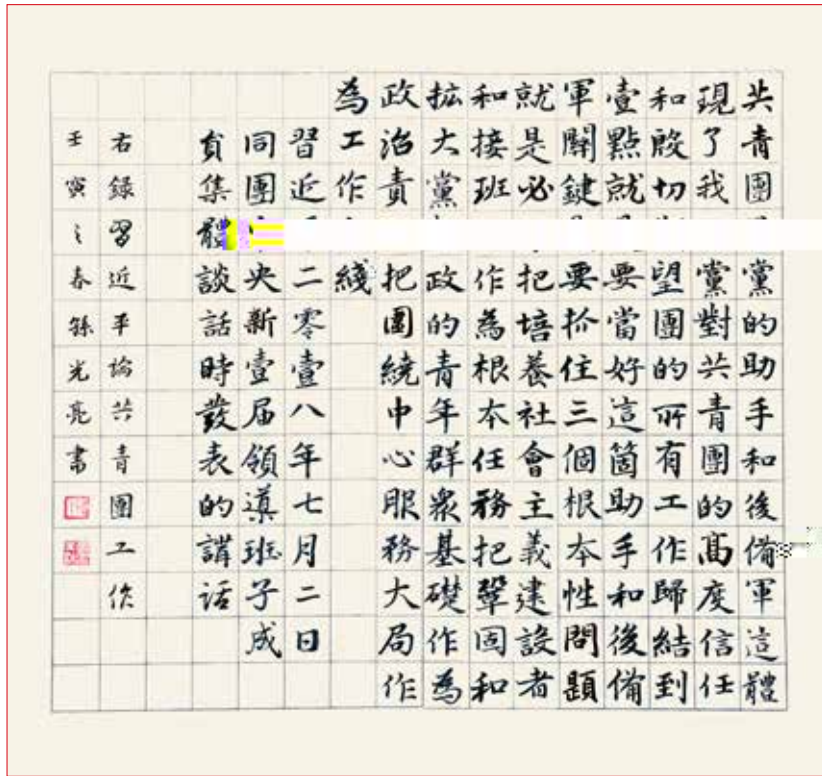 共青團黨的助手和後備軍這體
現了我黨對共青團的高度信任
和殷切望團的所有工作歸結到
壹點就要當好這箇助手和後備
軍關鍵要抓住三個根本性問題
就是必把培養社會主義建設者
和接班作為根本任務把鞏固和
拡大黨政的青年群衆基礎作為
政治責把圍繞中心服務大局作
為工作綫
習近二零壹八年七月二日
同團央新壹届領導班子成
員集體談話時發表的講話
右録習近平論共青團工作
壬寅之春孫光亮書